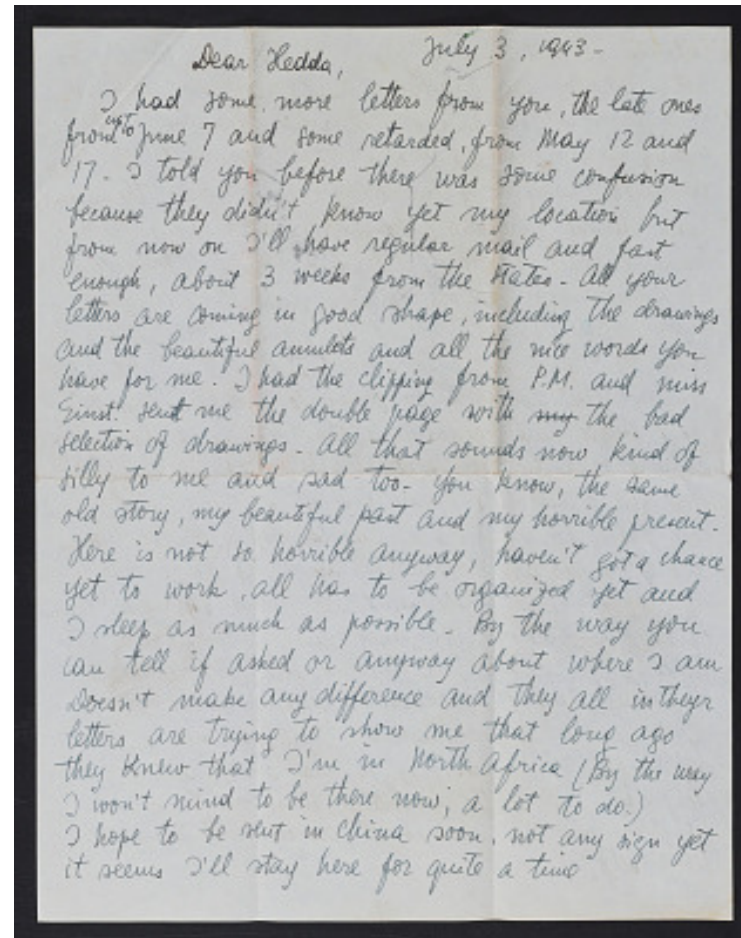 July 3, 1943-
Dear Hedda,
I had some more letters from you, the late ones
from up to June 7 and some retarded, from May 12 and
17. I told you before there was some confusion
because they didn't know yet my location but
from now on I'll have regular mail and fast
enough, about 3 weeks from the States - All your
letters are coming in good shape, including the drawings
and the beautiful amulets and all the nice words you
have for me. I had the clipping from P.M. and miss
Einst. sent me the double page with my the bad
selection of drawings - All that sounds now kind of
silly to me and sad too - You know, the same
old story, my beautiful past and my horrible present.
Here is not so horrible anyway, haven't got a chance
yet to work, all has to be organized yet and
I sleep as much as possible. By the way you
can tell if asked or anyway about where I am
Doesn't make any difference and they all in theyr
letters are trying to show me that long ago
they knew that I'm in North Africa (By the way
I won't mind to be there now; a lot to do.)
I hope to be sent in China soon, not any sign yet
it seems I'll stay here for quite a time